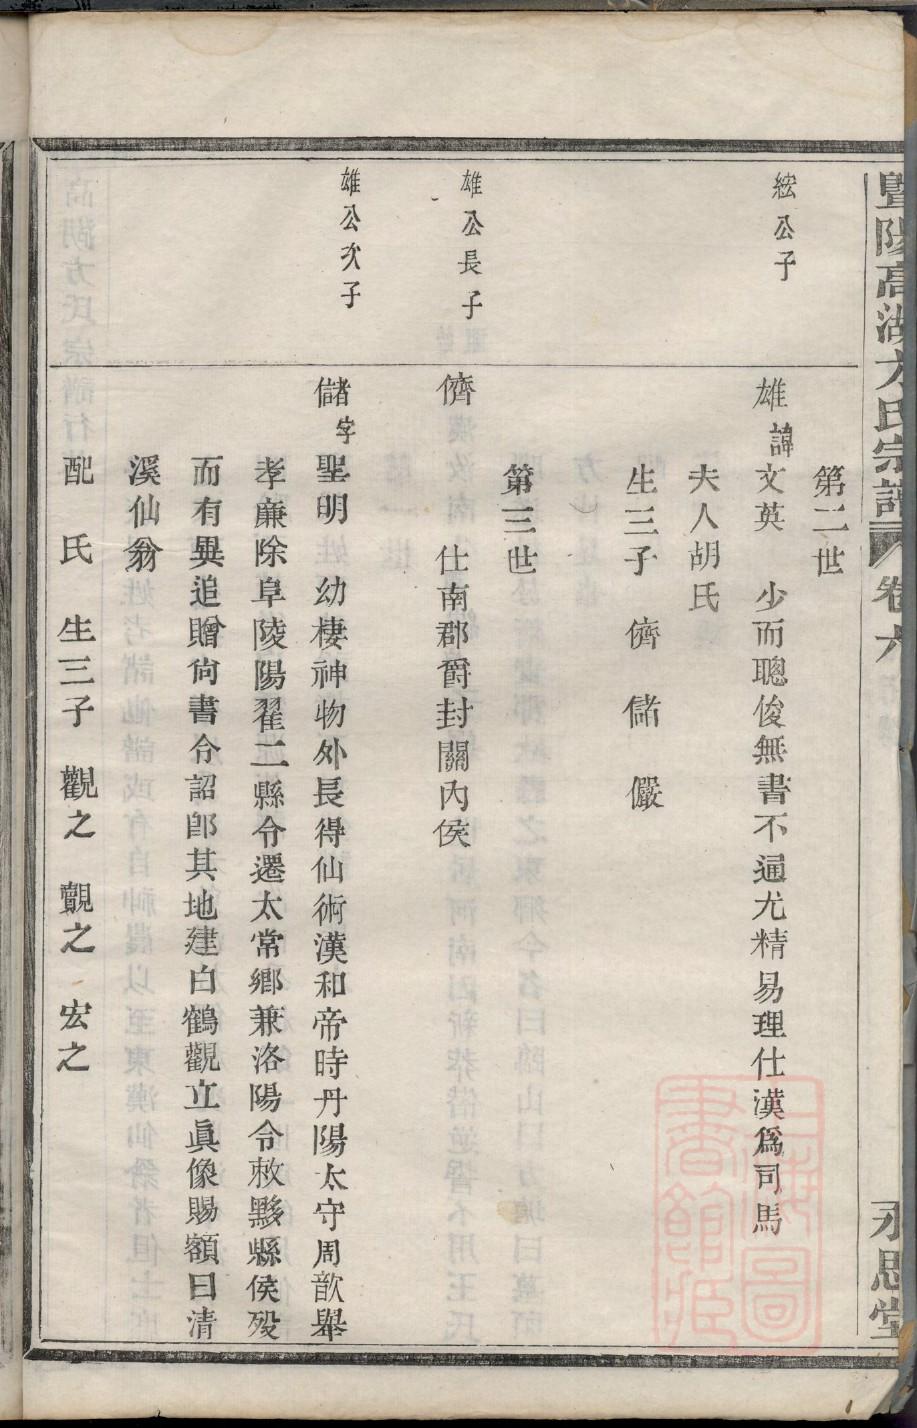 暨陽高湖方氏宗譜 卷六 永思堂
第二世
紘公子
雄諱文英 少而聰俊無書不通尤精易理仕漢爲司馬
夫人胡氏
生三子 儕 儲 儼
第三世
雄公長子
儕 仕南郡爵封關內侯
雄公次子
儲字聖明 幼棲神物外長得仙術漢和帝時丹陽太守周歆舉
孝廉除阜陵陽翟二縣令遷太常鄉兼洛陽令敕黟縣侯歿
而有異追贈尙書令詔卽其地建白鶴觀立眞像賜額曰清
溪仙翁
配 氏 生三子 觀之 覿之 宏之